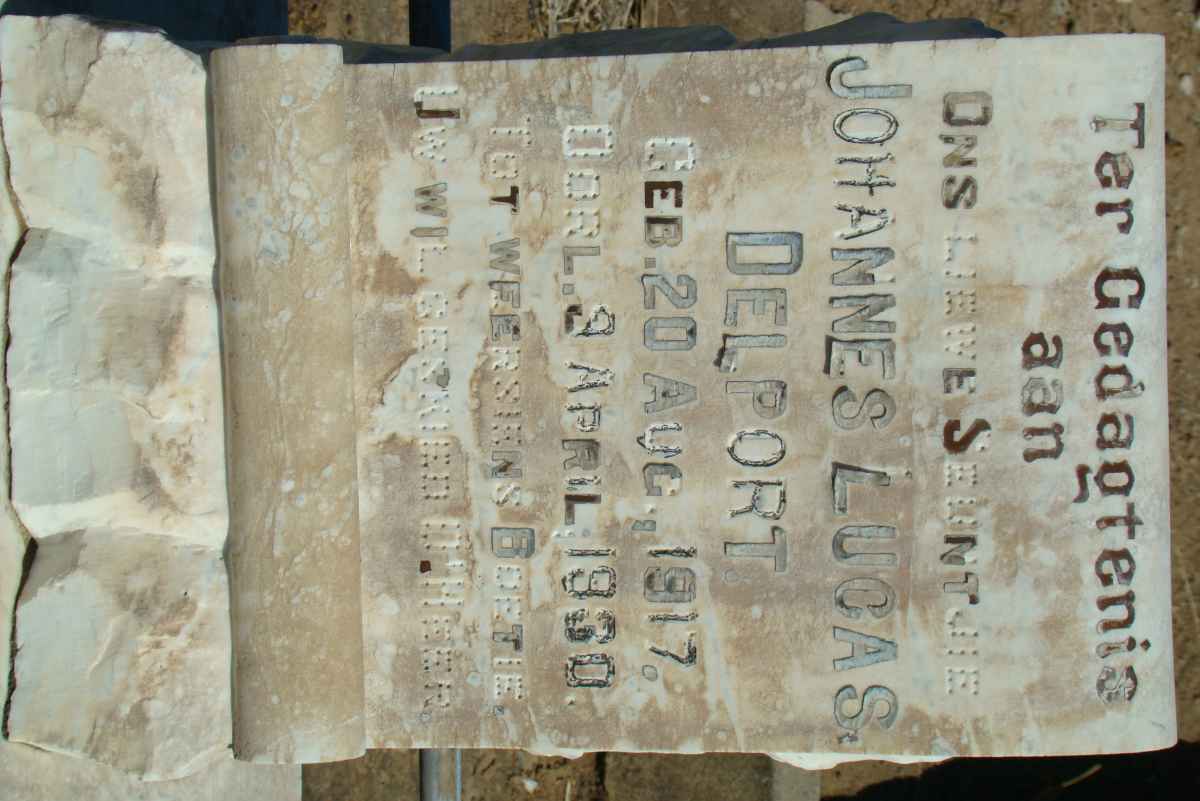 Ter Gedagtenis
aan
ONS LIEWE SEUNTJIE
JOHANNES LUCAS
DELPORT.
GEB. 20 AUG., 1917.
OORL. 3 APRIL. 1930.
TOT WEERSIENS BOETIE.
UW WIL GESKIED O HEER.